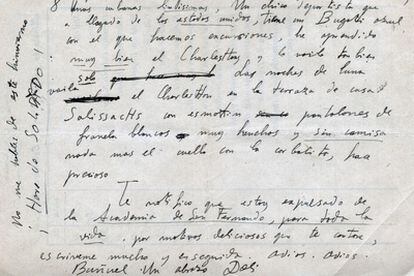 unas cubanas bellísimas, Un chico deportista que
llegado de los estados unidos, tiene un Bugatti azul
con el que hacemos excursiones, he aprendido
muy bien el Charleston y lo bailo tan bien
solo
Las noches de luna
bailo el Charleston en la terraza de casa
Salissachs con esmottin pantalones de
franela blancos muy henchos y sin camisa
nada mas el cuello con la corbatita, hace
precioso
Te notifico que estoy expulsado de
la Academia de San Fernando, para toda la
vida. por motivos deliciosos que te contare,
escriveme mucho y enseguida adios. adios.
Buñuel Un abrazo Dalí
No me hables de este himnerismo
¡Hora da SOLDADO!